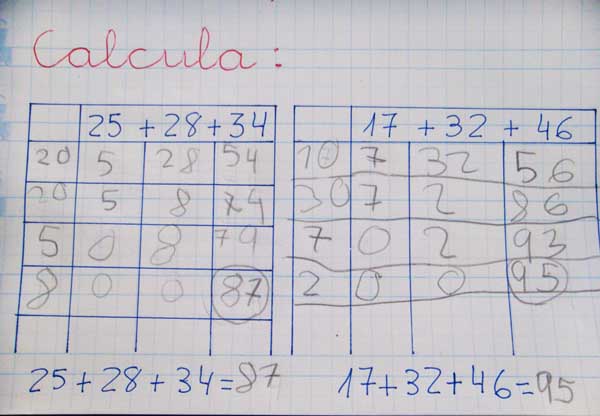 Calcula:
25 + 28 + 34
20 5 28 54
20 5 8 74
5 0 8 79
8 0 0 87
25 + 28 + 34 = 87
17 + 32 + 46
10 7 32 56
30 7 2 86
7 0 2 93
2 0 0 95
17 + 32 + 46 = 95